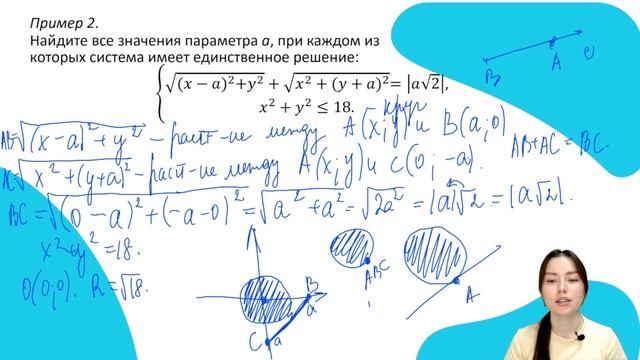 Пример 2.
Найдите все значения параметра a, при каждом из
которых система имеет единственное решение:
√((x − a)²+y²) + √(x² + (y + a)²)= |a√2|,
x² + y² ≤ 18.
круг
AB=√((x−a)²+y²) – расст-ие между A(x;y) и B(a;0)
AC=√(x²+(y+a)²) – расст-ие между A(x;y) и C(0;−a).
AB+AC=BC.
BC=√((0−a)²+(−a−0)²)=√(a²+a²)=√(2a²)=|a|√2=|a√2|.
x²+y²=18.
O(0;0). R=√18.
B A C
B a
C a
A B C
A